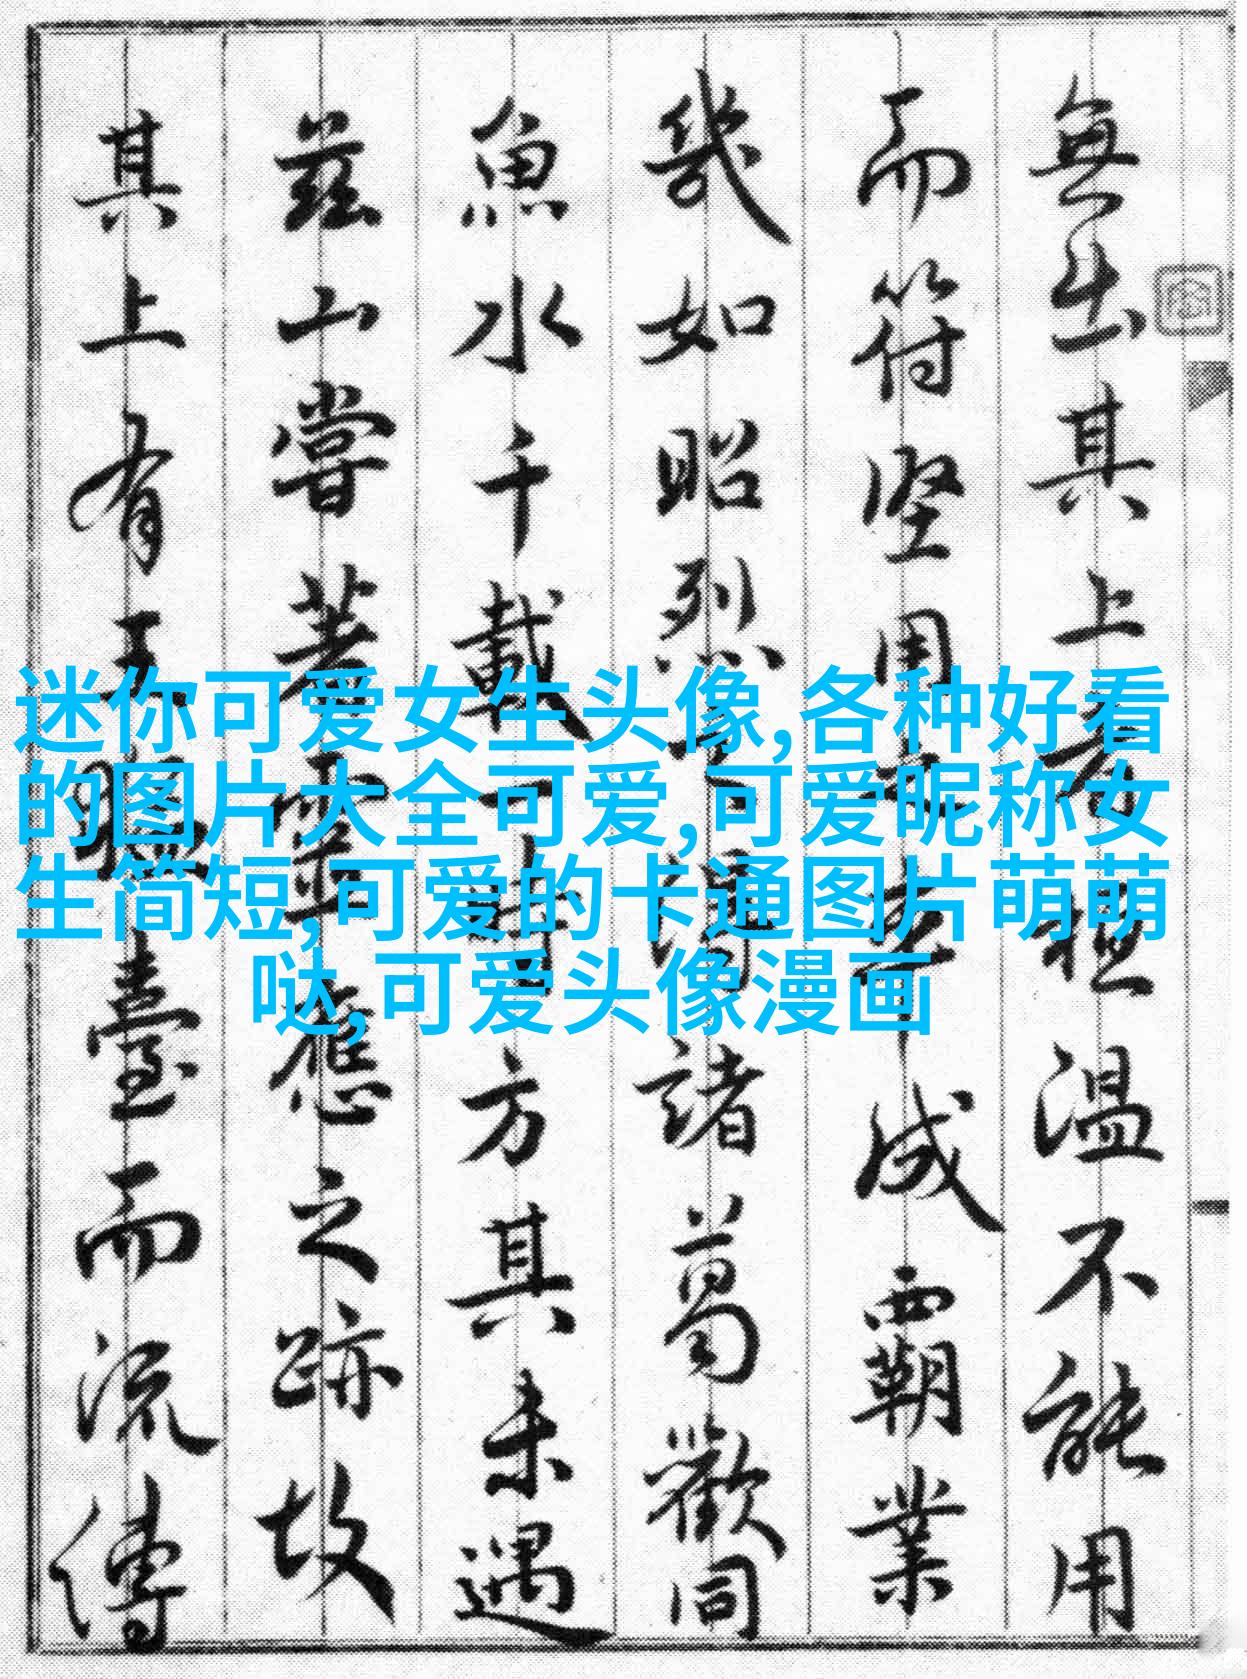 無出其上者桓温不能用
而符堅用
成霸業
幾如昭烈
諸葛歡同
魚水千載一時方其未遇
兹山嘗著靈應之跡故
其上有王
臺而流傳
迷你可爱女生头像,各种好看
的图片大全可爱,可爱昵称女
生简短,可爱的卡通图片萌萌
哒,可爱头像漫画